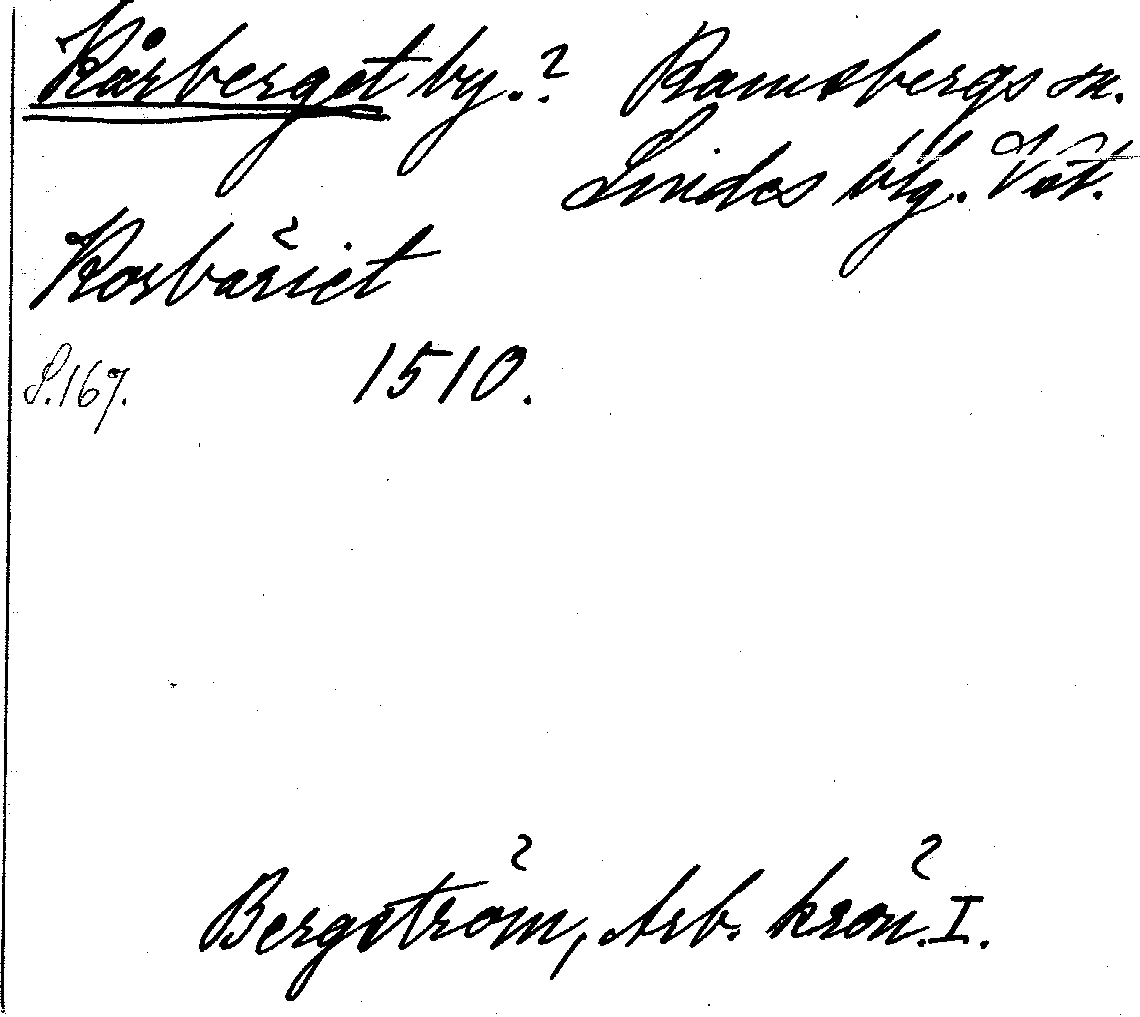 Kårberget by.? Ramsbergs sn.
Lindes blg. Väst.
Korbäriet
S.167. 1510.
Bergström, Arb. krön. I.